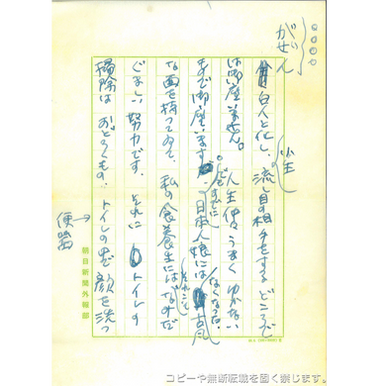 がせん
小生
白人と化し、流し目の相手をするどころで
は御座いません。人生仲々うまくゆかない
もので御座います。
なくなった
日本人娘には古風
な面を持ってゐて、私の食養生にはなみだ
それこそ
ぐましい努力です。それにトイレの
掃除はおどろくもの、トイレの顔を洗っ
便器
朝日新聞外報部
コピーや無断転載を固く禁じます。